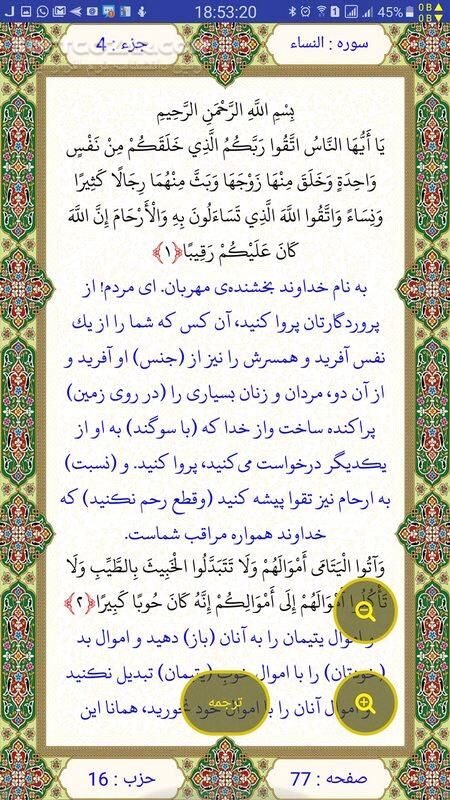 18:53:20
45%
0B
0B
سوره : النساء
جزء : 4
بِسْمِ اللَّهِ الرَّحْمَنِ الرَّحِيمِ
يَا أَيُّهَا النَّاسُ اتَّقُوا رَبَّكُمُ الَّذِي خَلَقَكُمْ مِنْ نَفْسٍ
وَاحِدَةٍ وَخَلَقَ مِنْهَا زَوْجَهَا وَبَثَّ مِنْهُمَا رِجَالًا كَثِيرًا
وَنِسَاءً وَاتَّقُوا اللَّهَ الَّذِي تَسَاءَلُونَ بِهِ وَالْأَرْحَامَ إِنَّ اللَّهَ
كَانَ عَلَيْكُمْ رَقِيبًا﴿١﴾
به نام خداوند بخشنده‌ی مهربان. ای مردم! از
پروردگارتان پروا کنید، آن کس که شما را از یك
نفس آفرید و همسرش را نیز از (جنس) او آفرید و
از آن دو، مردان و زنان بسیاری را (در روی زمین)
پراکنده ساخت واز خدا که (با سوگند) به او از
یکدیگر درخواست می‌کنید، پروا کنید. و (نسبت)
به ارحام نیز تقوا پیشه کنید (وقطع رحم نکنید) که
خداوند همواره مراقب شماست.
وَآتُوا الْيَتَامَى أَمْوَالَهُمْ وَلَا تَتَبَدَّلُوا الْخَبِيثَ بِالطَّيِّبِ وَلَا
تَأْكُلُوا أَمْوَالَهُمْ إِلَى أَمْوَالِكُمْ إِنَّهُ كَانَ حُوبًا كَبِيرًا﴿٢﴾
و اموال یتیمان را به آنان (باز) دهید و اموال بد
(خودتان) را با اموال خوب (یتیمان) تبدیل نکنید
اموال آنان را با اموال خود نخورید، همانا این
ترجمه
صفحه : 77
حزب : 16